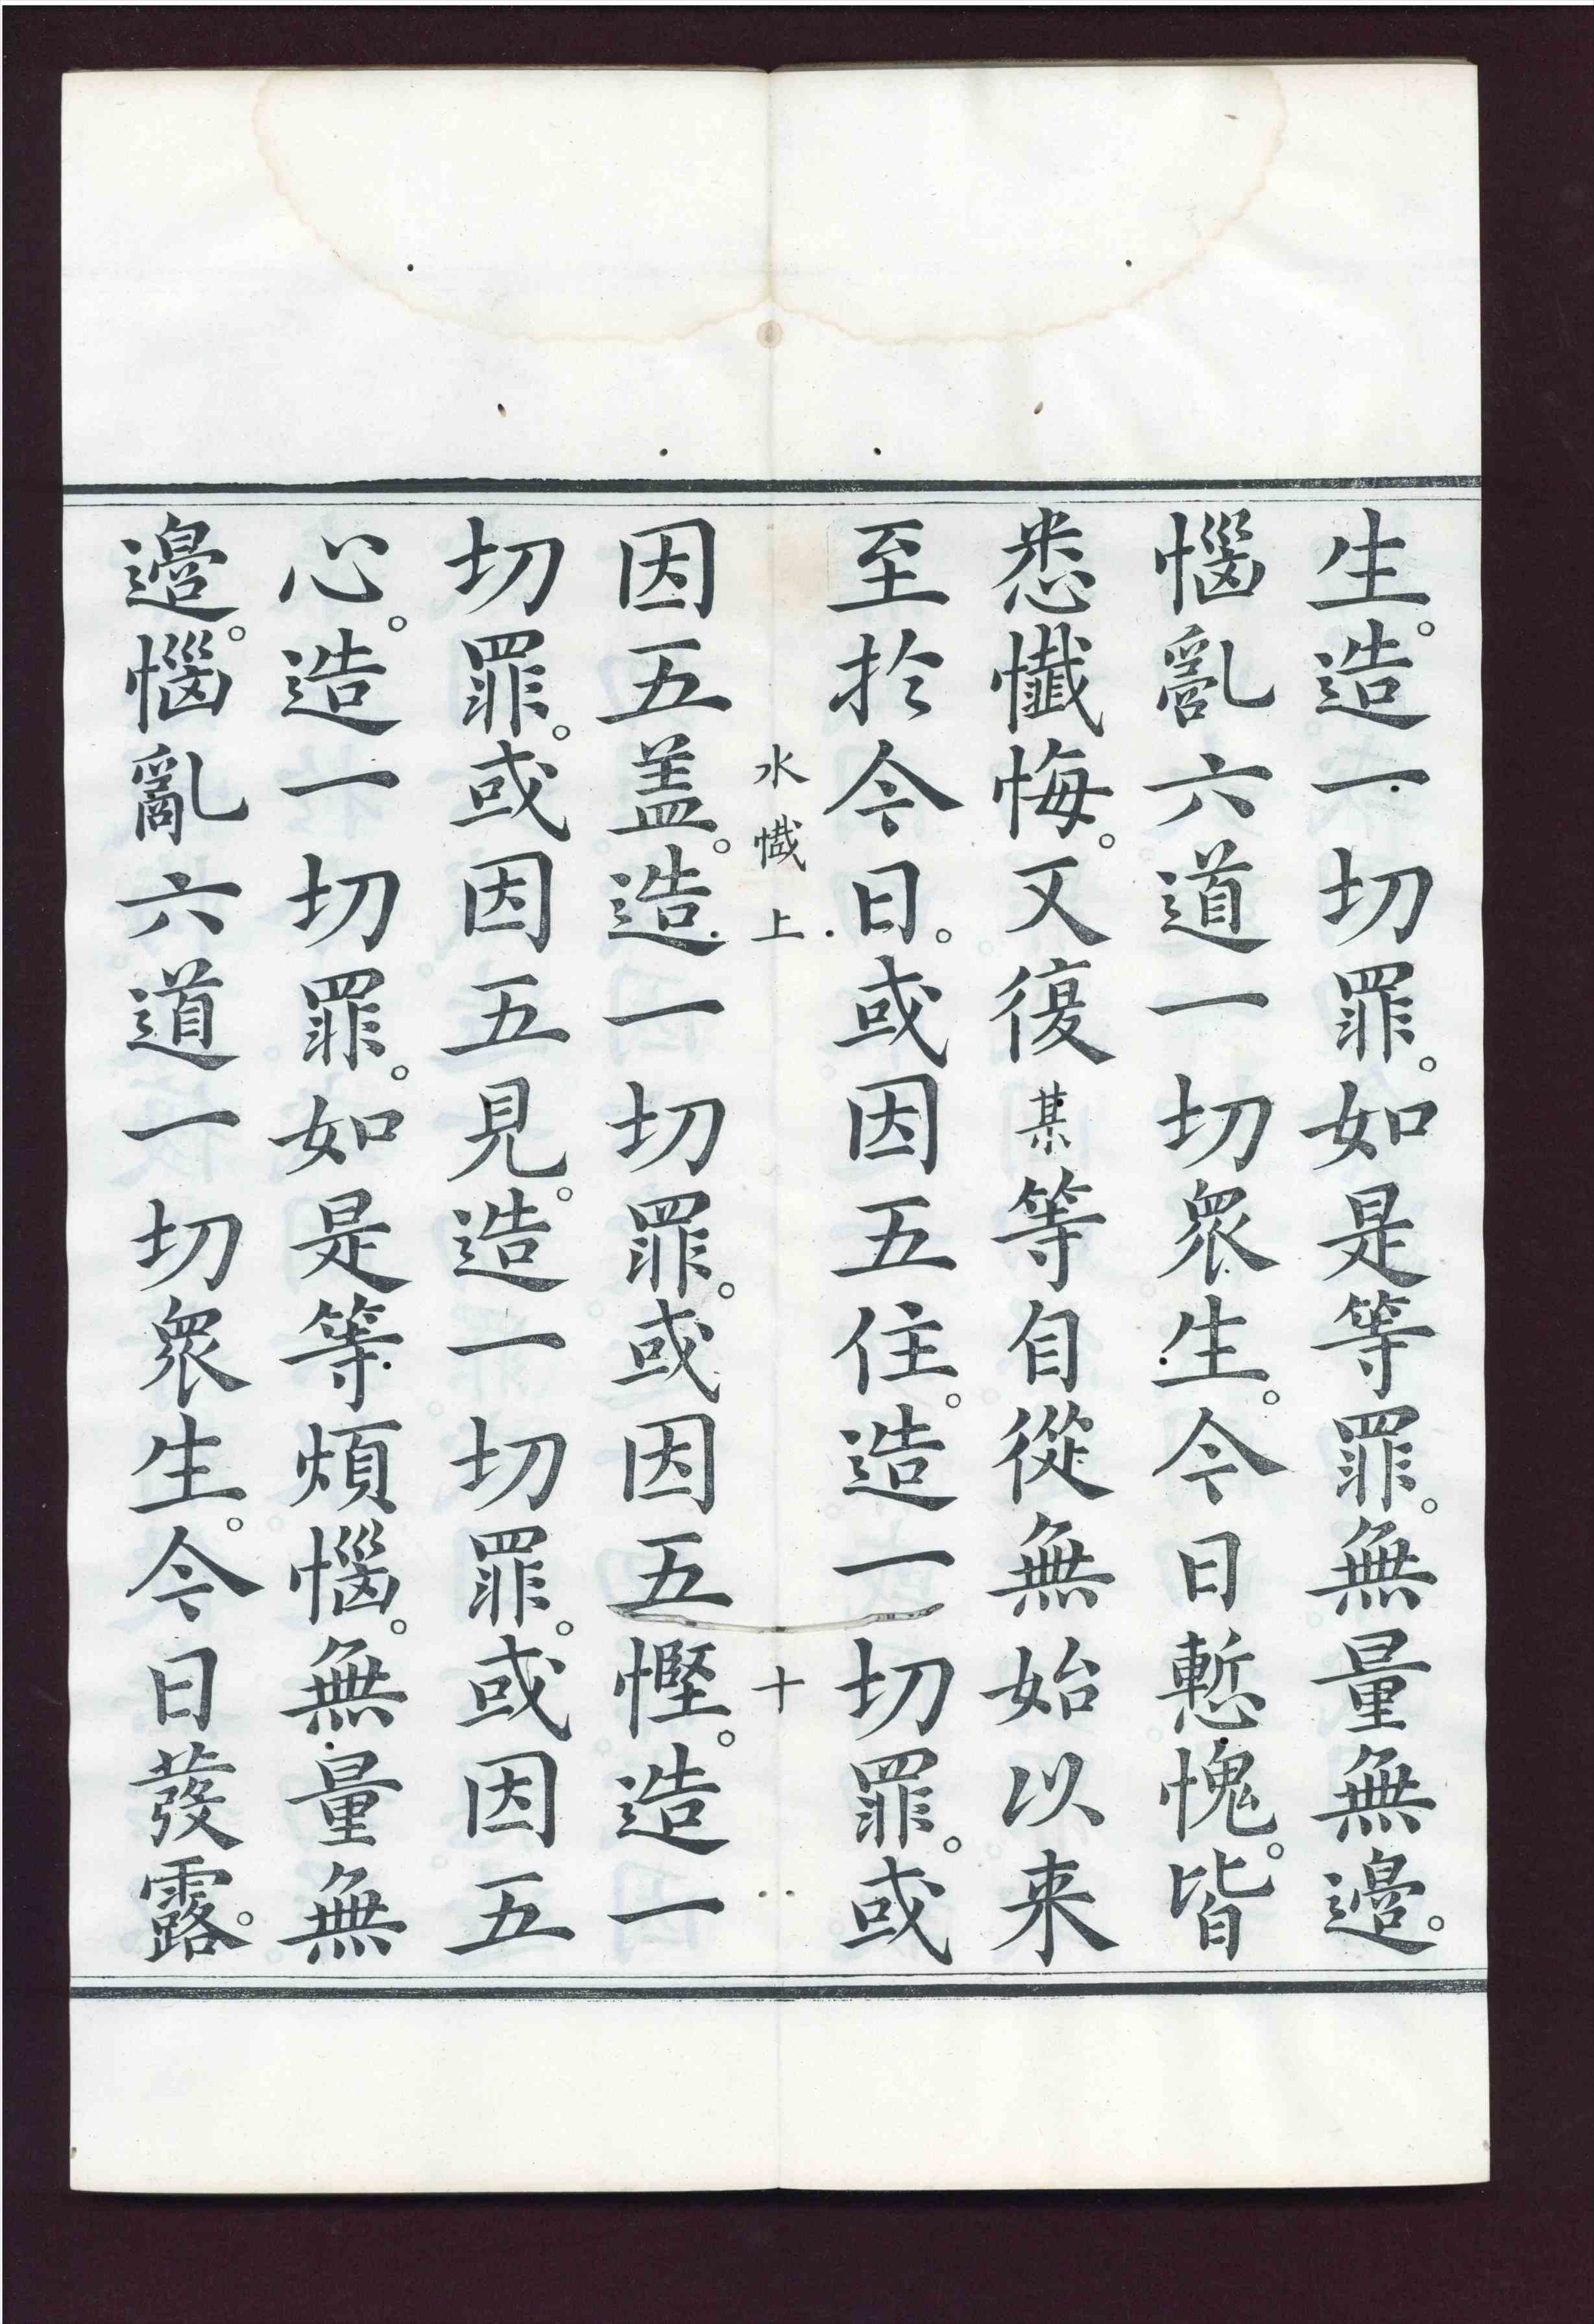 生。造一切罪。如是等罪。無量無邊。
惱亂六道一切眾生。今日慙愧。皆
悉懺悔。又復某等自從無始以来
至扵今日。或因五住。造一切罪。或
水懺上 十
因五盖。造一切罪。或因五慳。造一
切罪。或因五見。造一切罪。或因五
心。造一切罪。如是等煩惱。無量無
邊。惱亂六道一切眾生。今日發露。